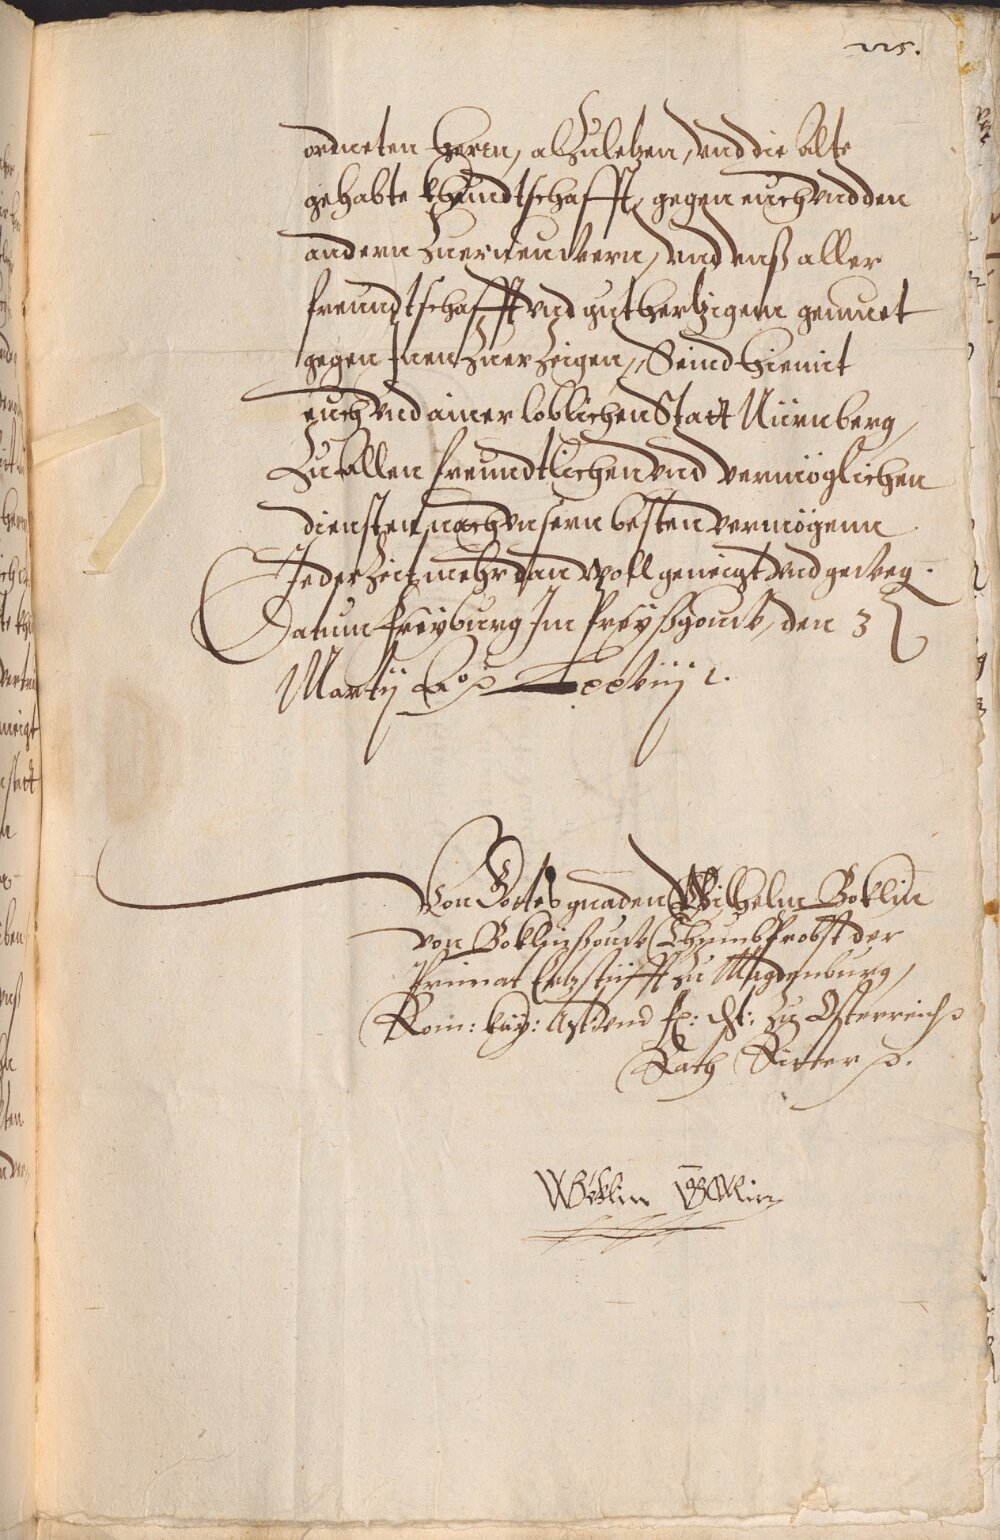 225.
ordneten herrn, abzuletzen, vnd die alte
gehabte khundtschafft, gegen euch vnd den
andern zuerneuwern, vnd vnß aller
freundtschafft vnd guthertzigem gemuet
gegen Inen zuerzeigen, Seind hiemit
euch vnd ainer loblichen Statt Nürnberg,
zu allen freundtlichen vnd vermöglichen
diensten, nach vnserm besten vermögenn
Jederzeit mehr dan woll geneigt vnd geweg.
Datum Freyburg Im Preyßgouw, den 3
Martij Aō
Von Gottes gnaden Wilhelm Böklin
von Böklinßouw Thumb Probst der
Primat Ertzstüfft zu Magdenburg,
Rom: kay: Mt vnd fr: dt: zu Osterreich
Rath Ritter
W Böklin